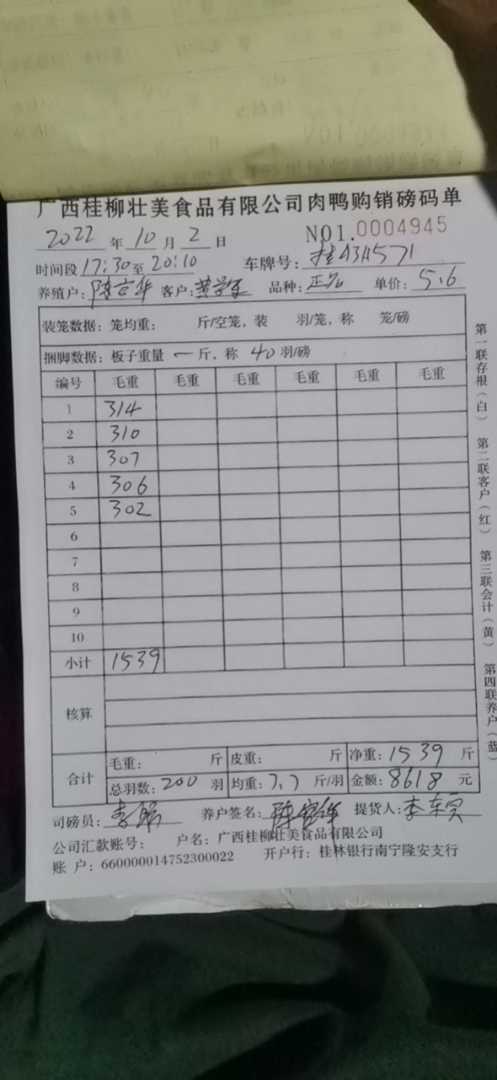 广西桂柳壮美食品有限公司肉鸭购销磅码单
2022 年 10 月 2 日 NO1.0004945
时间段 17:30 至 20:10 车牌号: 桂A34571
养殖户: 客户: 品种: 单价: 5.6
装笼数据: 笼均重: 斤/空笼, 装 羽/笼, 称 笼/磅
捆脚数据: 板子重量 一 斤, 称 40 羽/磅
编号 毛重 毛重 毛重 毛重 毛重 毛重
1 314
2 310
3 307
4 306
5 302
6
7
8
9
10
小计 1539
核算
合计 毛重: 斤 皮重: 斤 净重: 1539 斤
总羽数: 200 羽 均重: 7.7 斤/羽 金额: 8618 元
司磅员: 养户签名: 提货人:
公司汇款账号: 户名: 广西桂柳壮美食品有限公司
账 户: 660000014752300022 开户行: 桂林银行南宁隆安支行
第一联存根(白) 第二联客户(红) 第三联会计(黄) 第四联养户(蓝)